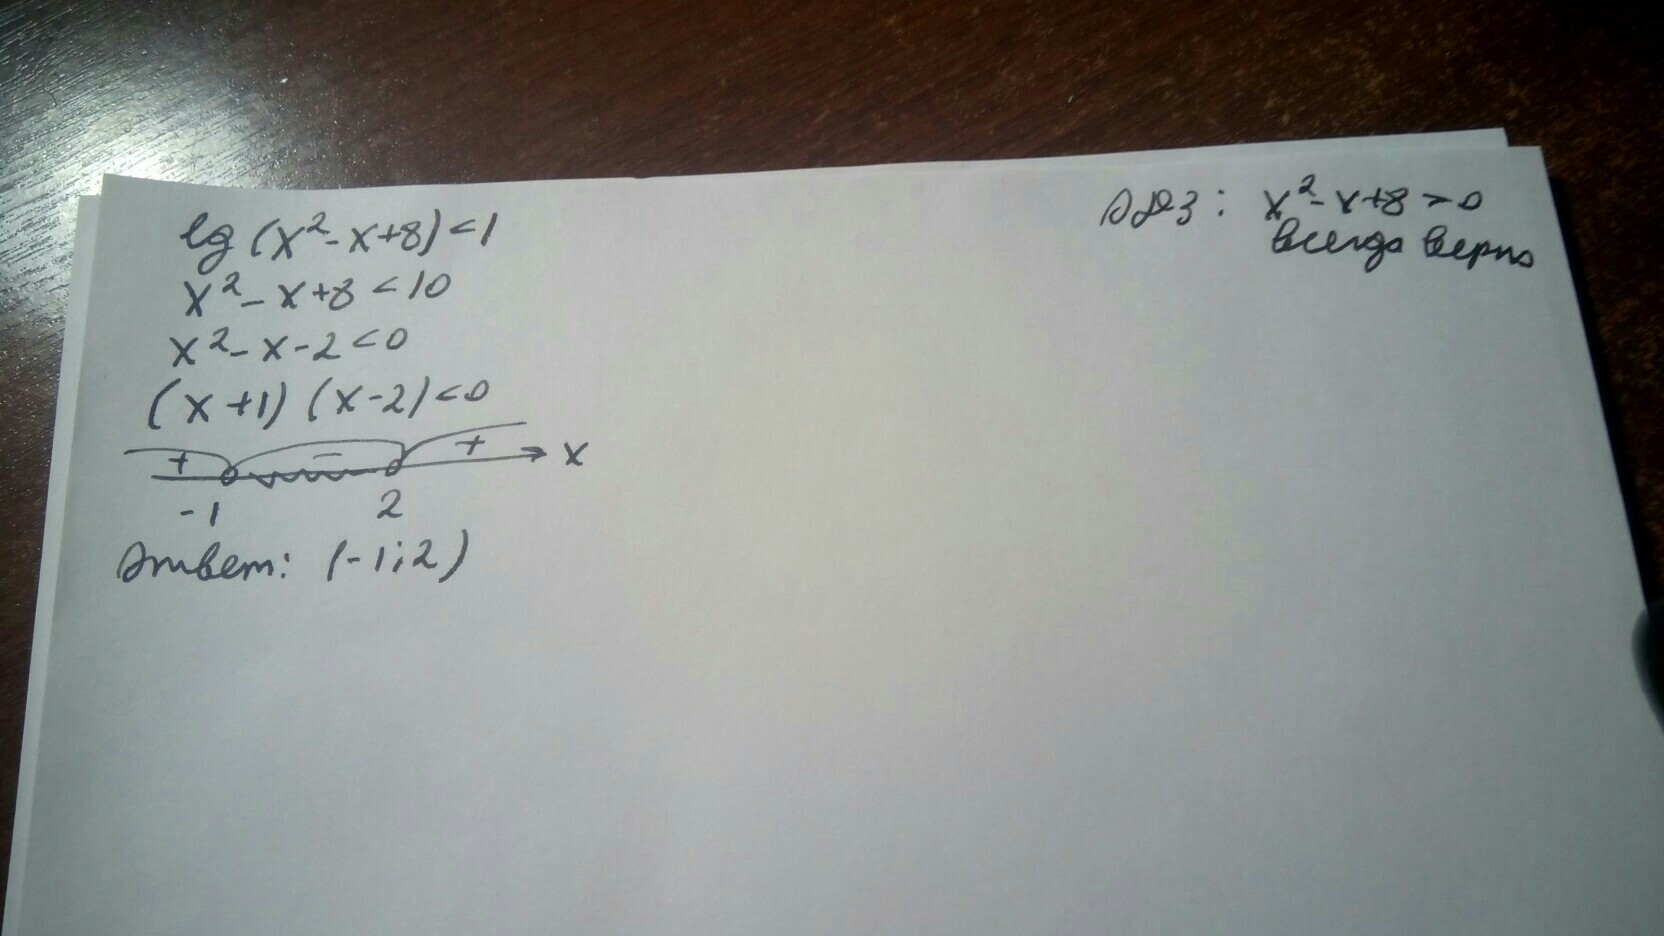 lg (x²-x+8)<1
x²-x+8<10
x²-x-2<0
(x+1)(x-2)<0
+ - + x
-1 2
Ответ: (-1;2)
ОДЗ: x²-x+8>0
всегда верно